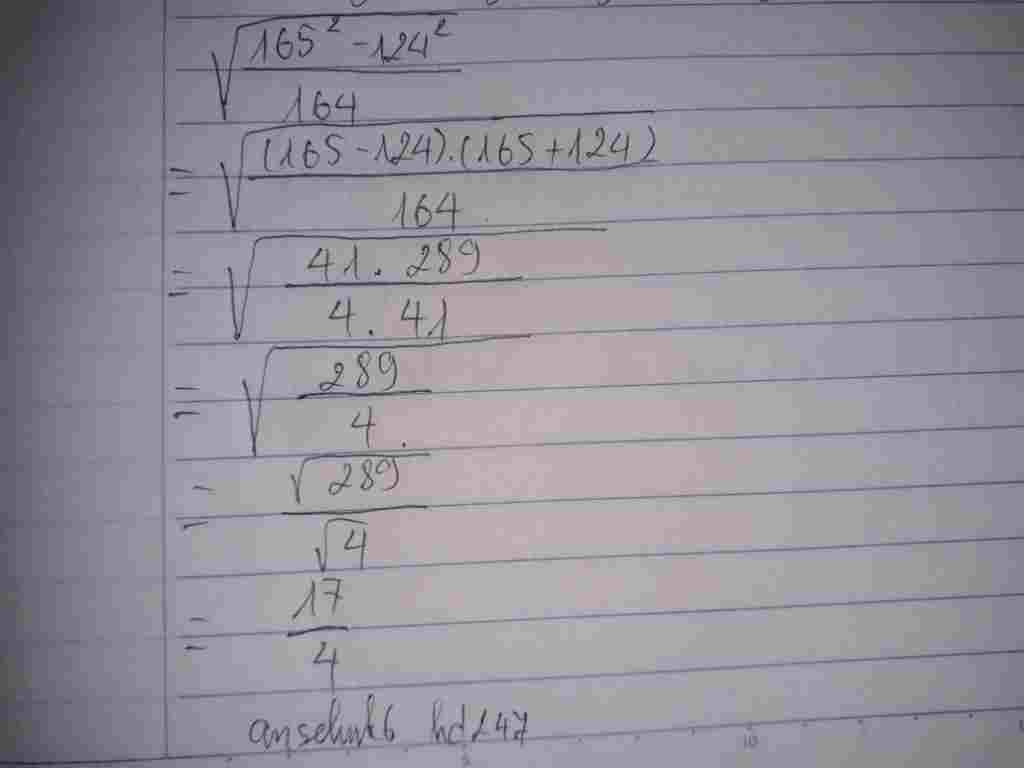 √(165² - 124² / 164)
= √((165 - 124).(165 + 124) / 164)
= √(41 . 289 / 4 . 41)
= √(289 / 4)
= √289 / √4
= 17 / 4
hd247